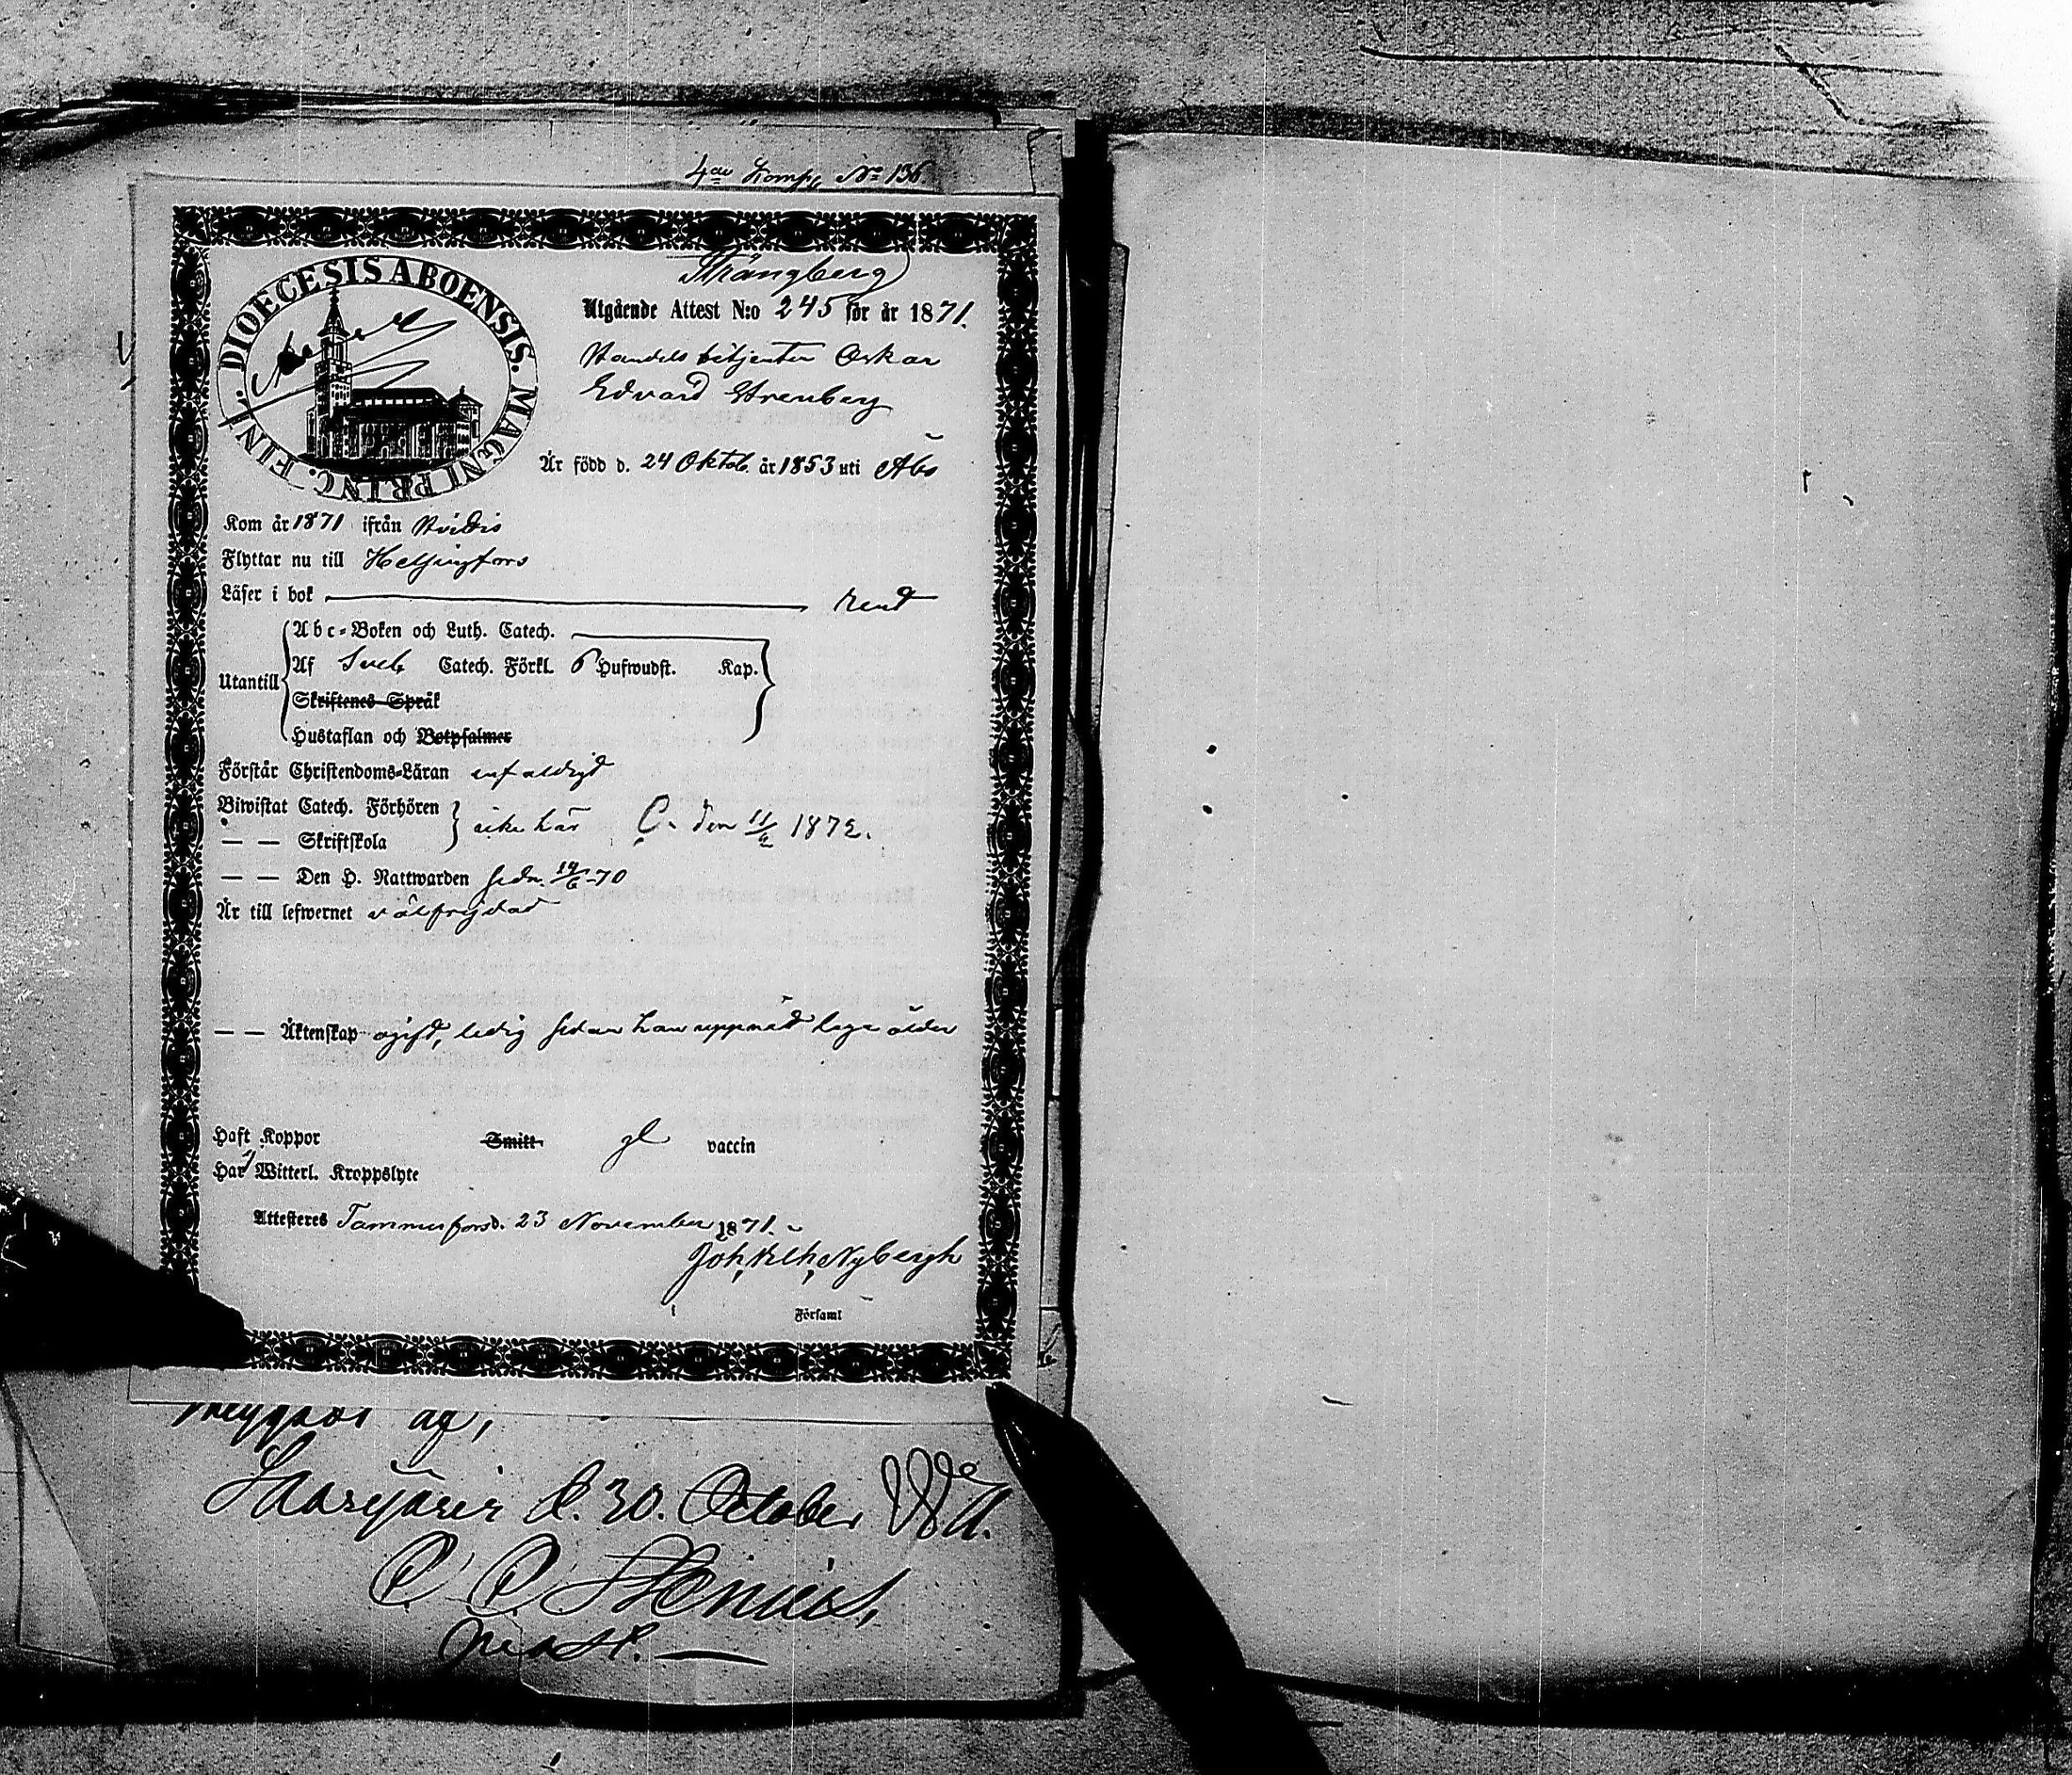 4de Komp. No 136
DIOECESIS ABOENSIS. MAGNI PRINC. FINL.
Strångberg
Utgående Attest N:o 245 för år 1871.
Handels betjenten Oskar
Edvard Strenberg
Är född d. 24 Oktob. år 1853 uti Åbo
Kom år 1871 ifrån
Flyttar nu till Helsingfors
Läser i bok rent
Abc-Boken och Luth. Catech.
Utantill Af Sveb Catech. Förkl. 6 Hufwudst. Kap.
Skriftenes Språk
Hustaflan och Botpsalmer
Förstår Christendoms-Läran enfaldigt
Biwistat Catech. Förhören
— — Skriftskola icke här C. den 11/2 1872.
— — Den H. Nattwarden sedn. 19/6 -70
Är till lefwernet välfrejdad
— — Äktenskap ogift, ledig sedan han uppnått laga ålder
Haft Koppor Smitt gl vaccin
Har Witterl. Kroppslyte
Attesteres Tammerfors d. 23 November 1871.
Joh, Vilh, Nybergh
Församl
af,
Saarijärvi d. 30. October